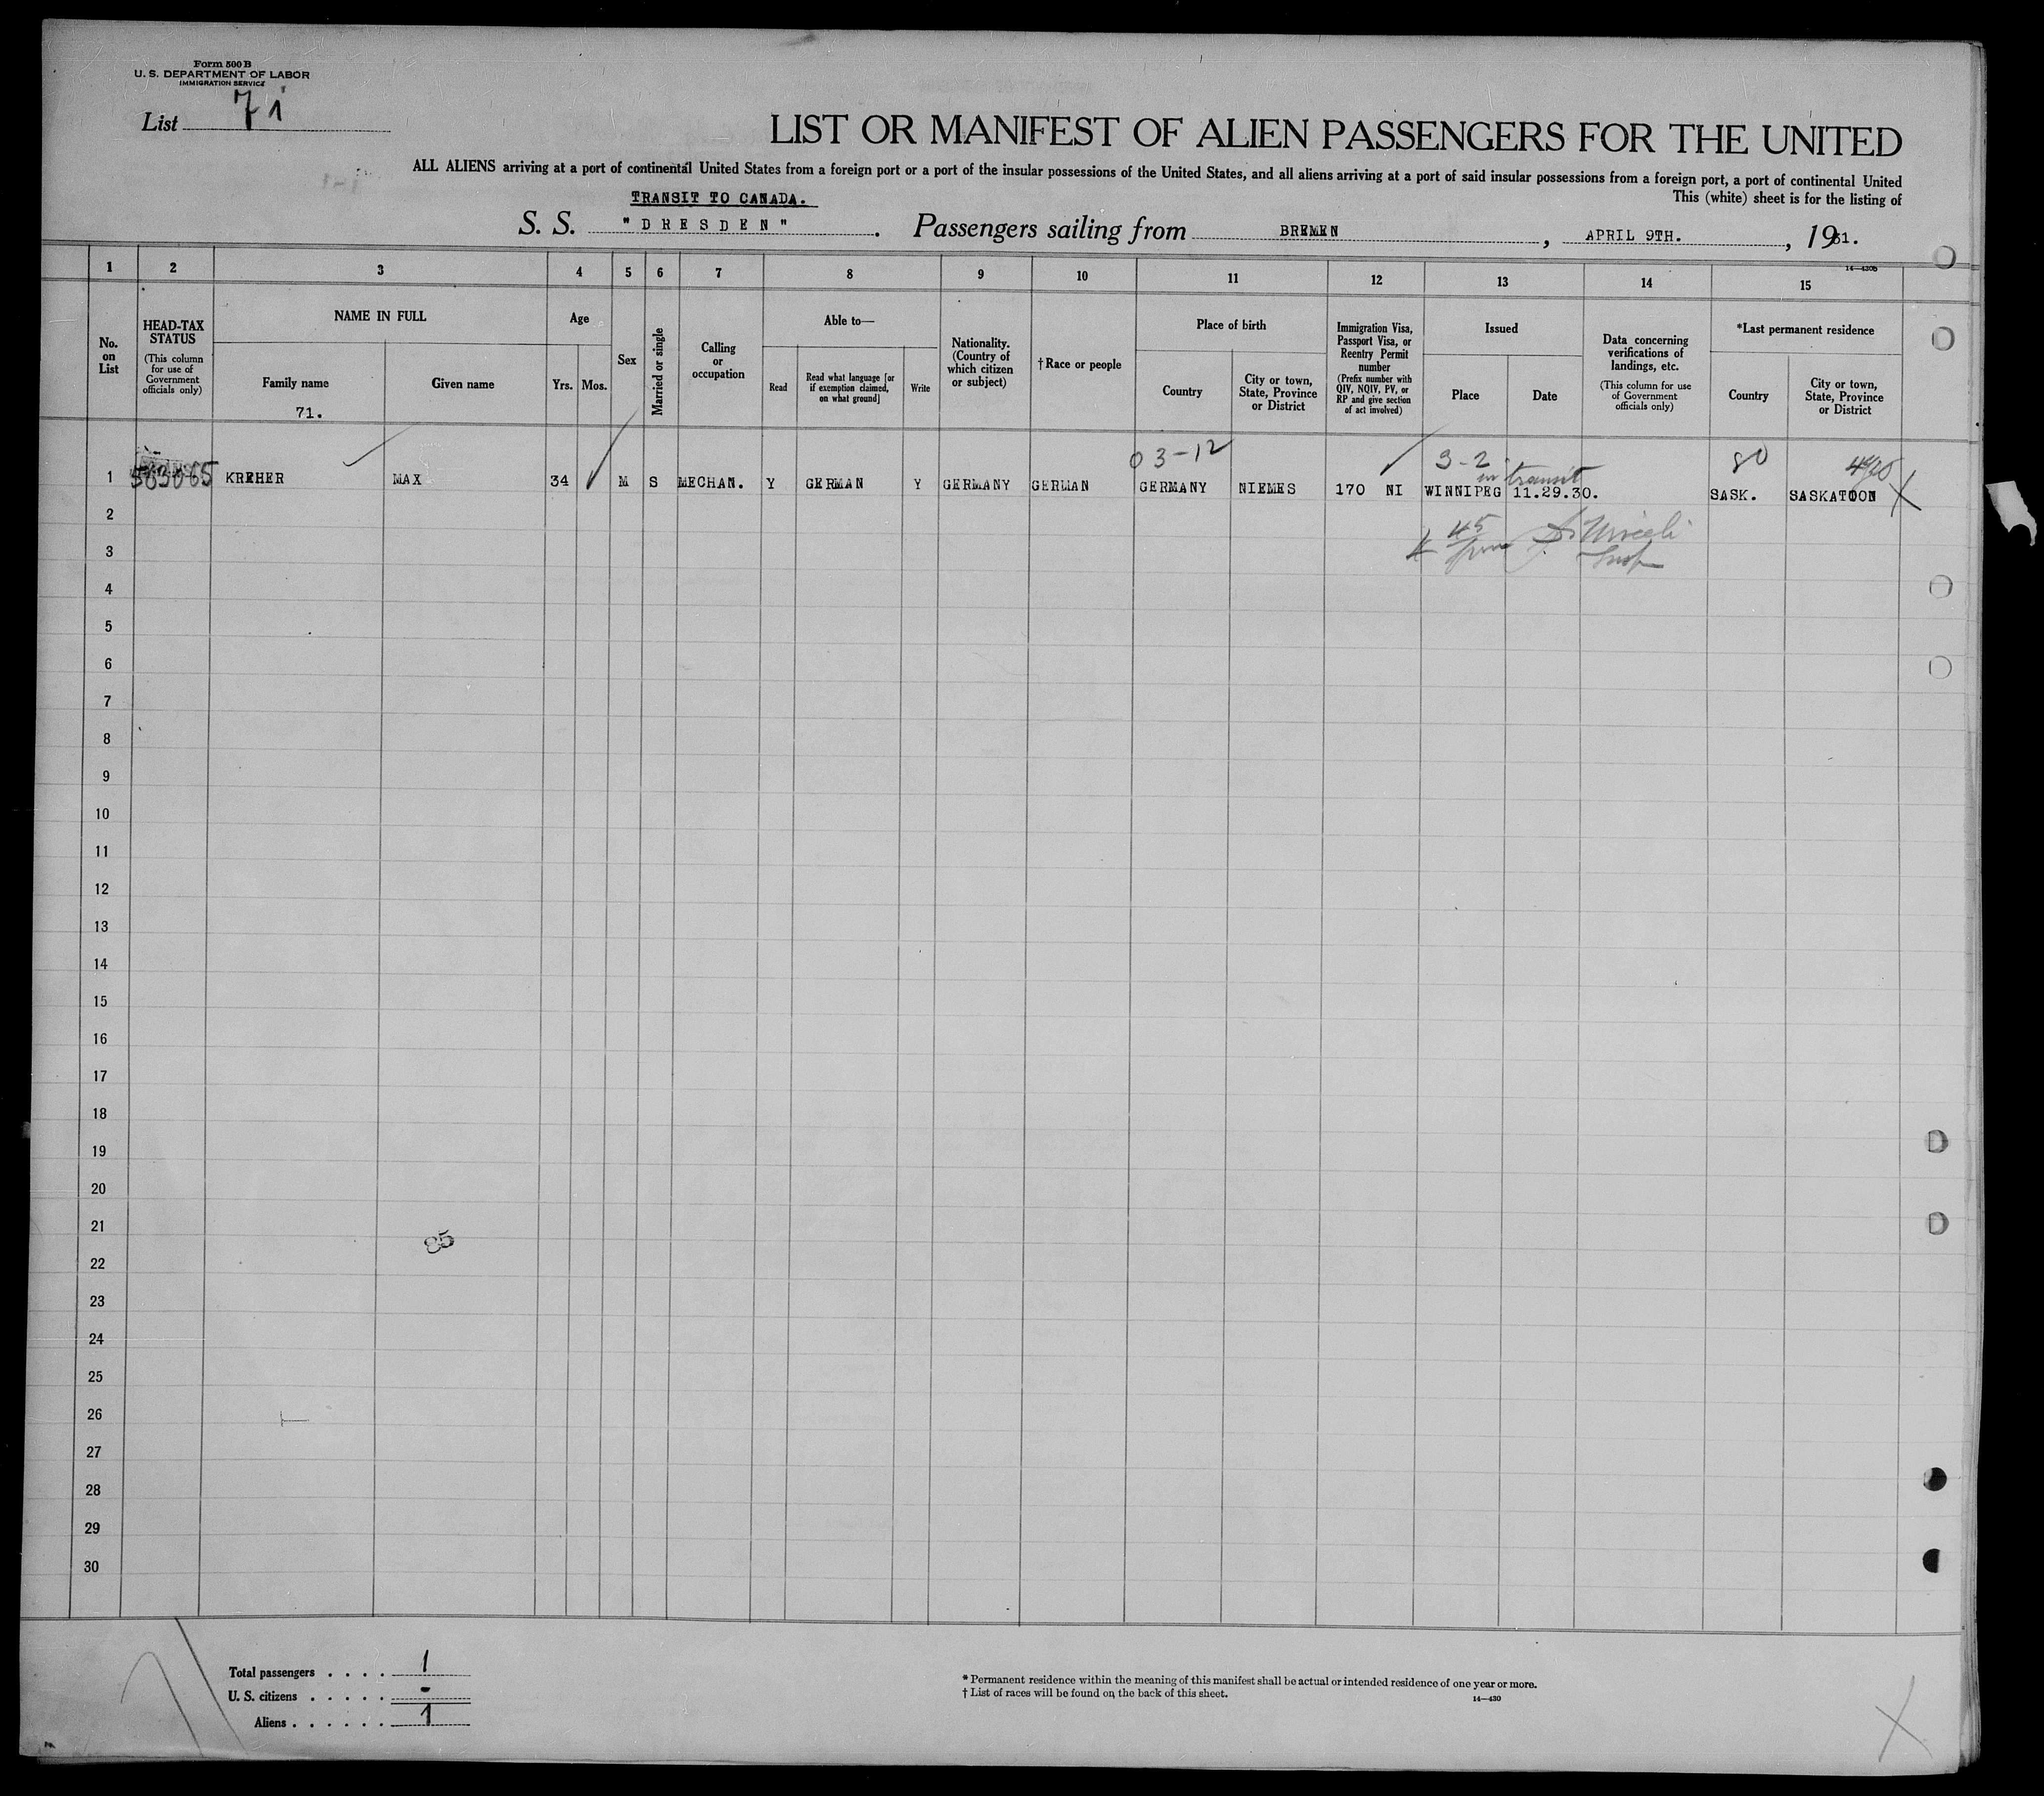 Form 500 B
U. S. DEPARTMENT OF LABOR
IMMIGRATION SERVICE
List 71
LIST OR MANIFEST OF ALIEN PASSENGERS FOR THE UNITED
ALL ALIENS arriving at a port of continental United States from a foreign port or a port of the insular possessions of the United States, and all aliens arriving at a port of said insular possessions from a foreign port, a port of continental United
This (white) sheet is for the listing of
TRANSIT TO CANADA.
S. S. "DRESDEN". Passengers sailing from BREMEN, APRIL 9TH., 1931.
14—430b
1 2 3 4 5 6 7 8 9 10 11 12 13 14 15
No. on List
HEAD-TAX STATUS (This column for use of Government officials only)
NAME IN FULL
Family name
71.
Given name
Age
Yrs. Mos.
Sex
Married or single
Calling or occupation
Able to—
Read
Read what language [or if exemption claimed, on what ground]
Write
Nationality. (Country of which citizen or subject)
†Race or people
Place of birth
Country
City or town, State, Province or District
Immigration Visa, Passport Visa, or Reentry Permit number (Prefix number with QIV, NQIV, PV, or RP and give section of act involved)
Issued
Place
Date
Data concerning verifications of landings, etc. (This column for use of Government officials only)
*Last permanent residence
Country
City or town, State, Province or District
03-12 3-2 80
in transit
1 KREHER MAX 34 M S MECHAN. Y GERMAN Y GERMANY GERMAN GERMANY NIEMES 170 NI WINNIPEG 11.29.30. SASK. SASKATOON
2
3
4
5
6
7
8
9
10
11
12
13
14
15
16
17
18
19
20
21
85
22
23
24
25
26
27
28
29
30
Total passengers . . . . 1
U. S. citizens . . . . . -
Aliens . . . . . . 1
* Permanent residence within the meaning of this manifest shall be actual or intended residence of one year or more.
† List of races will be found on the back of this sheet.
14—430